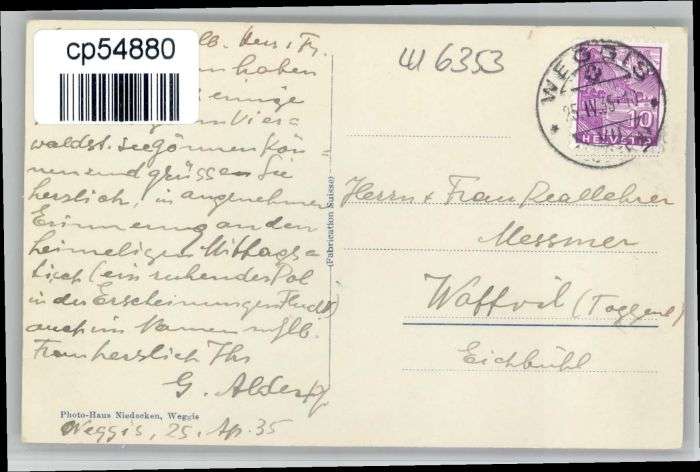 cp54880
lb. Herr & Fr.
haben
einige
Vier=
waldst. see gönnen kön=
nen und grüssen Sie
herzlich, in angenehmer
Erinnerung an den
heimeligen Mittags=
tisch (ein ruhender Pol
in der Erscheinungen Flucht)
auch im Namen m/lb.
Frau herzlich Ihr
G. Alder
Photo-Haus Niedecken, Weggis
Weggis, 25. Ap. 35
(Fabrication Suisse)
W 6353
WEGGIS
25.IV.35
10
HELVETIA
Herrn & Frau Reallehrer
Messmer
Wattwil (Toggenb)
Eichbühl